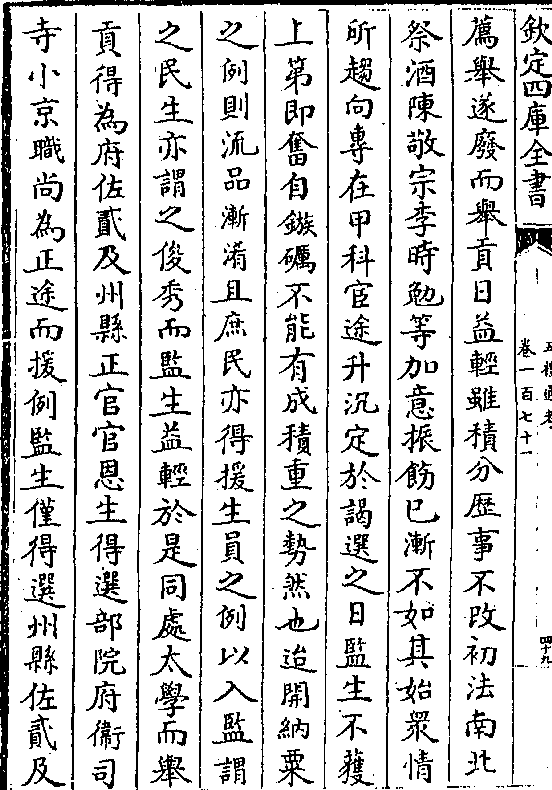 欽定四庫全書
五禮通考
卷一百七十一
四十九
薦舉遂廢而舉貢日益輕雖積分歴事不改初法南北
祭酒陳敬宗李時勉等加意振飭已漸不如其始衆情
所趨向專在甲科宦途升沉定於謁選之日監生不獲
上第即奮自鏃礪不能有成積重之勢然也迨開納粟
之例則流品漸淆且庶民亦得援生員之例以入監謂
之民生亦謂之俊秀而監生益輕於是同處太學而舉
貢得為府佐貳及州縣正官官恩生得選部院府衞司
寺小京職尚為正途而援例監生僅得選州縣佐貳及